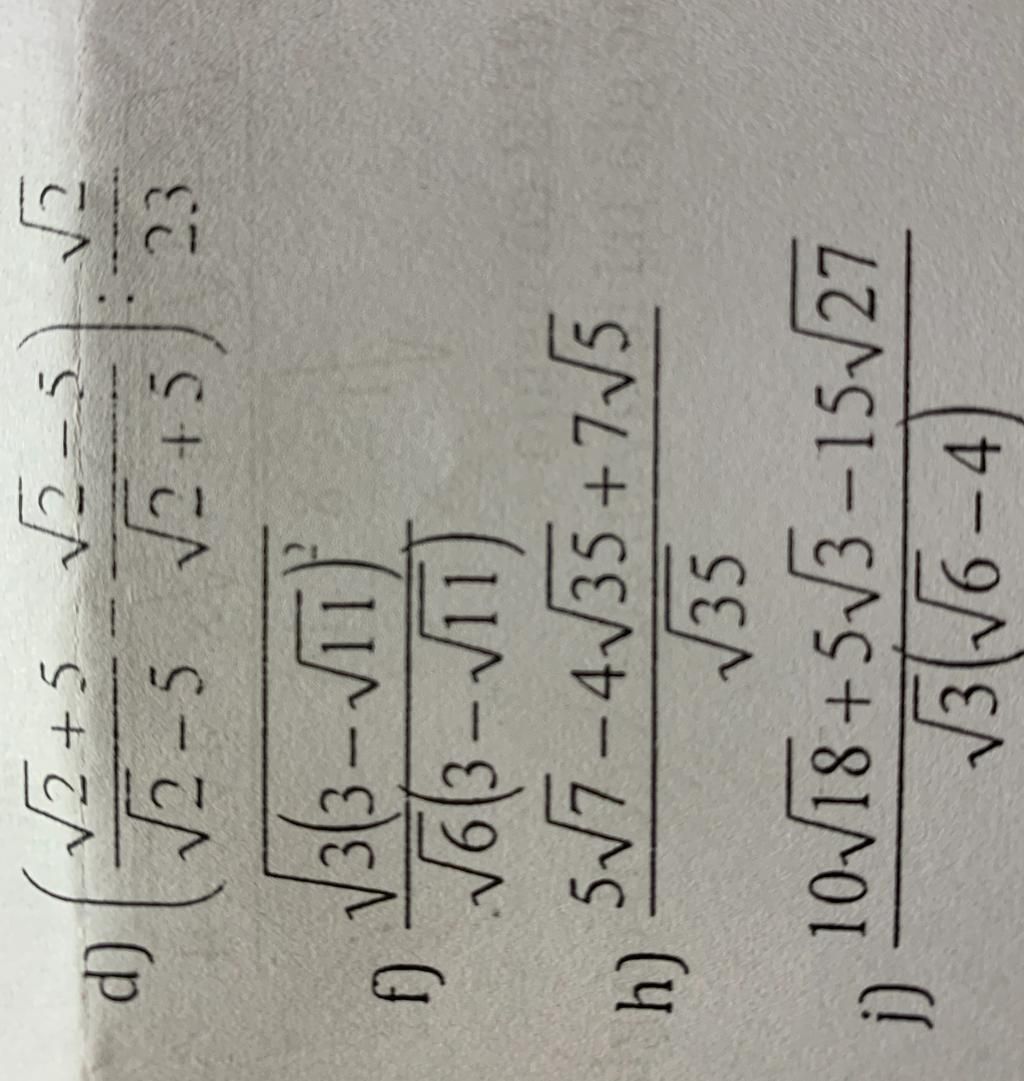 d) (\frac{√2 + 5}{√2 − 5} − \frac{√2 − 5}{√2 + 5}) : \frac{√2}{23}
f) \frac{\sqrt{3(3 − √11)^2}}{√6(3 − √11)}
h) \frac{5√7 − 4√35 + 7√5}{√35}
j) \frac{10√18 + 5√3 − 15√27}{√3(√6 − 4)}